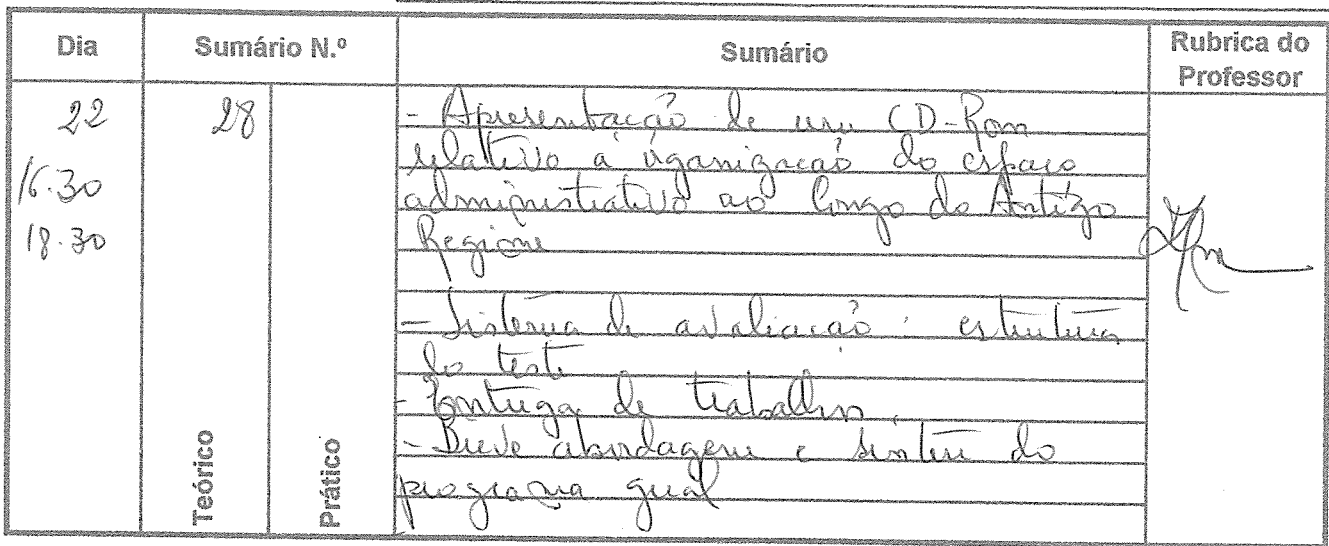 Dia Sumário N.º Sumário Rubrica do Professor
22 28 - Apresentação de um CD-Rom
relativo à organização do espaço
16.30 administrativo ao longo do Antigo
18.30 Regime
- Sistema de avaliação: estrutura
do teste
- Entrega de trabalhos.
- Breve abordagem e síntese do
programa geral
Teórico Prático